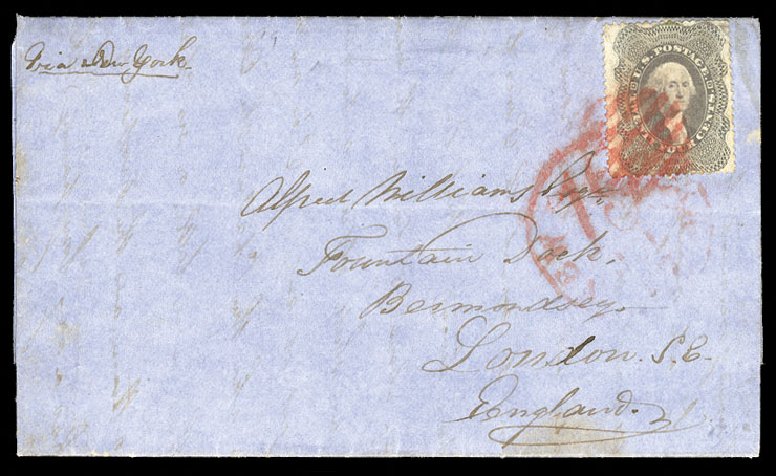 Via New York.
U.S. POSTAGE
TWENTY FOUR CENTS
Alfred Williams Esqr.
Fountain Dock.
Bermondsey.
London. S.E.
England.